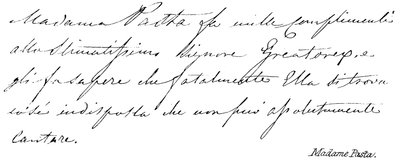 Madama Pasta fa mille Complimenti
allo Stimatissimo Signore Greatorex, e
gli fa sapere che fatalmente Ella si trova
così indisposta che non può assolutamente
Cantare.
Madame Pasta.